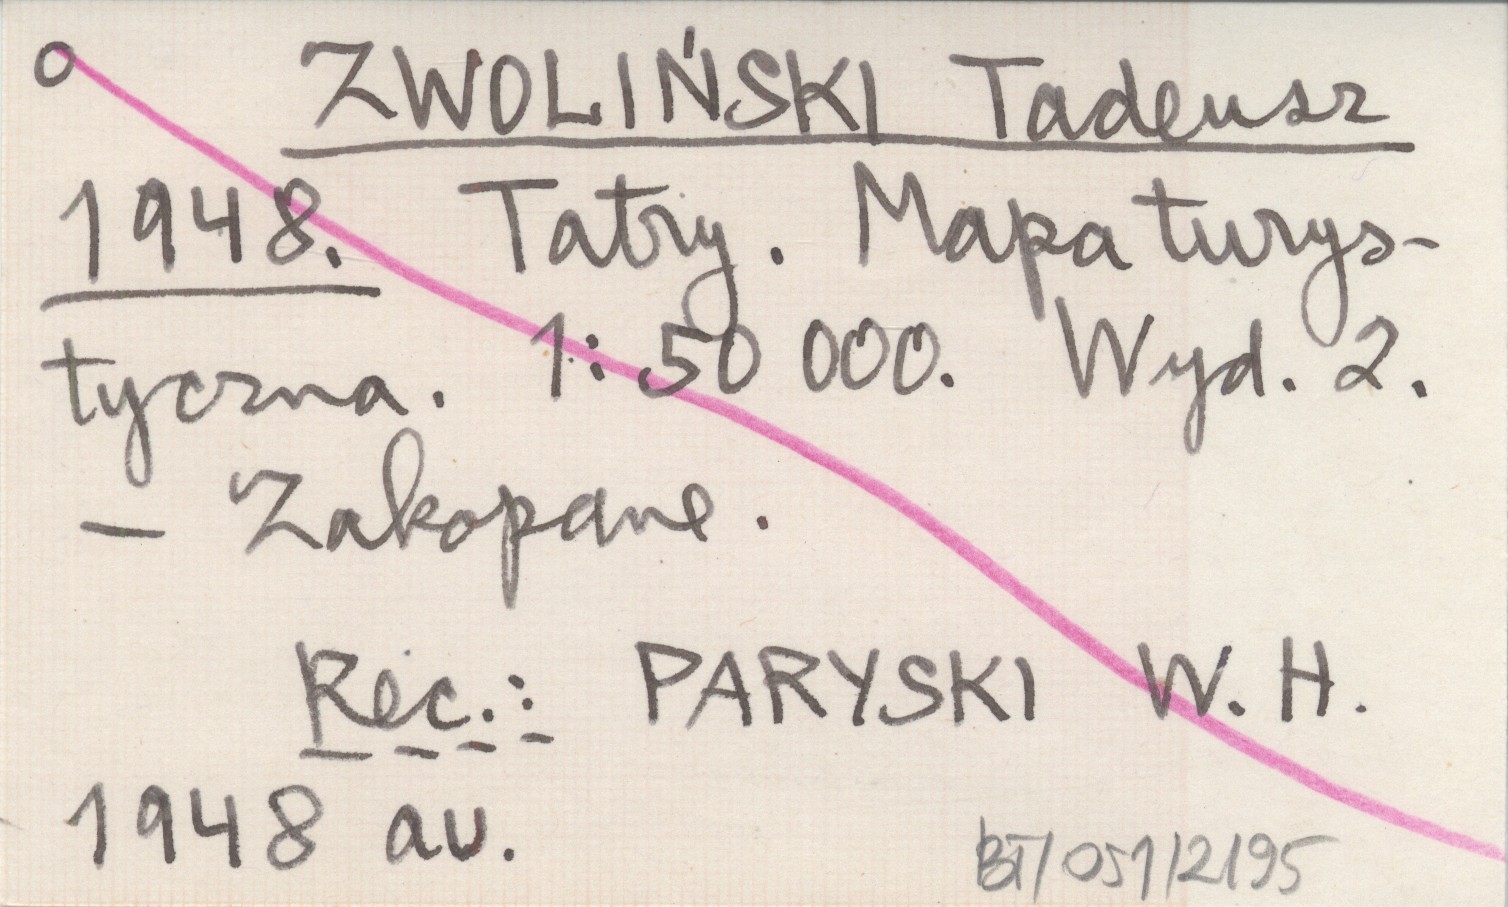 ZWOLIŃSKI Tadeusz
1948. Tatry. Mapa turys-
tyczna. 1:50 000. Wyd. 2.
— Zakopane.
Rec.: PARYSKI W. H.
1948 au.
BT/051/2/95